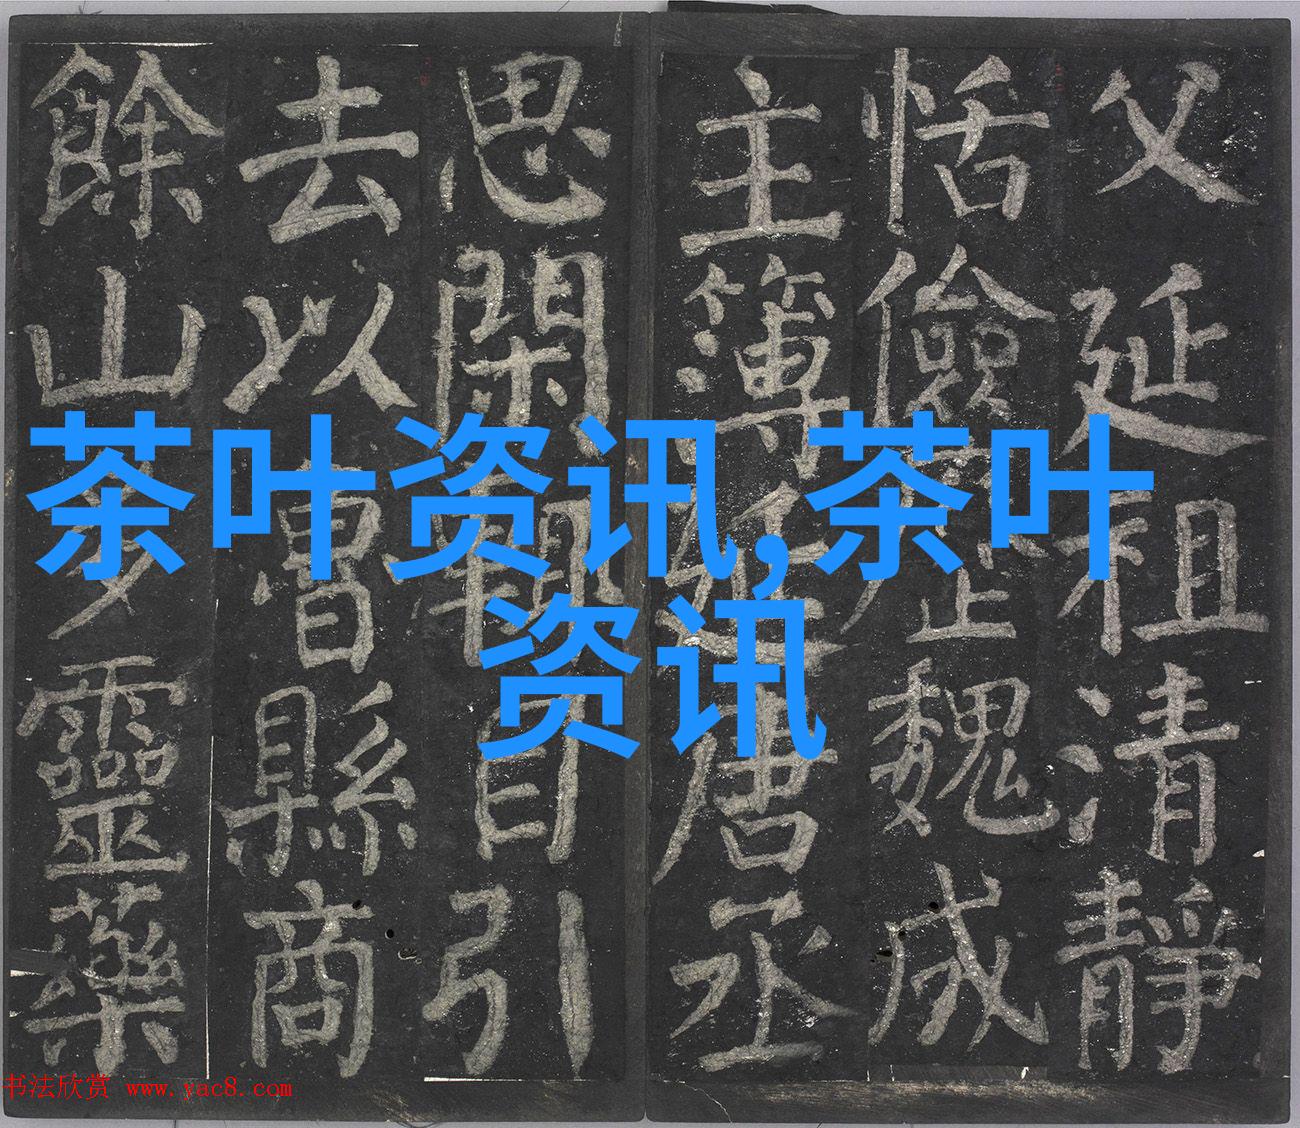 茶叶资讯,茶叶
资讯
父延祖清靜
恬儉歷魏成
主簿延唐丞
思閑輒自引
去以魯縣商
餘山多靈藥
书法欣赏 www.yac8.com